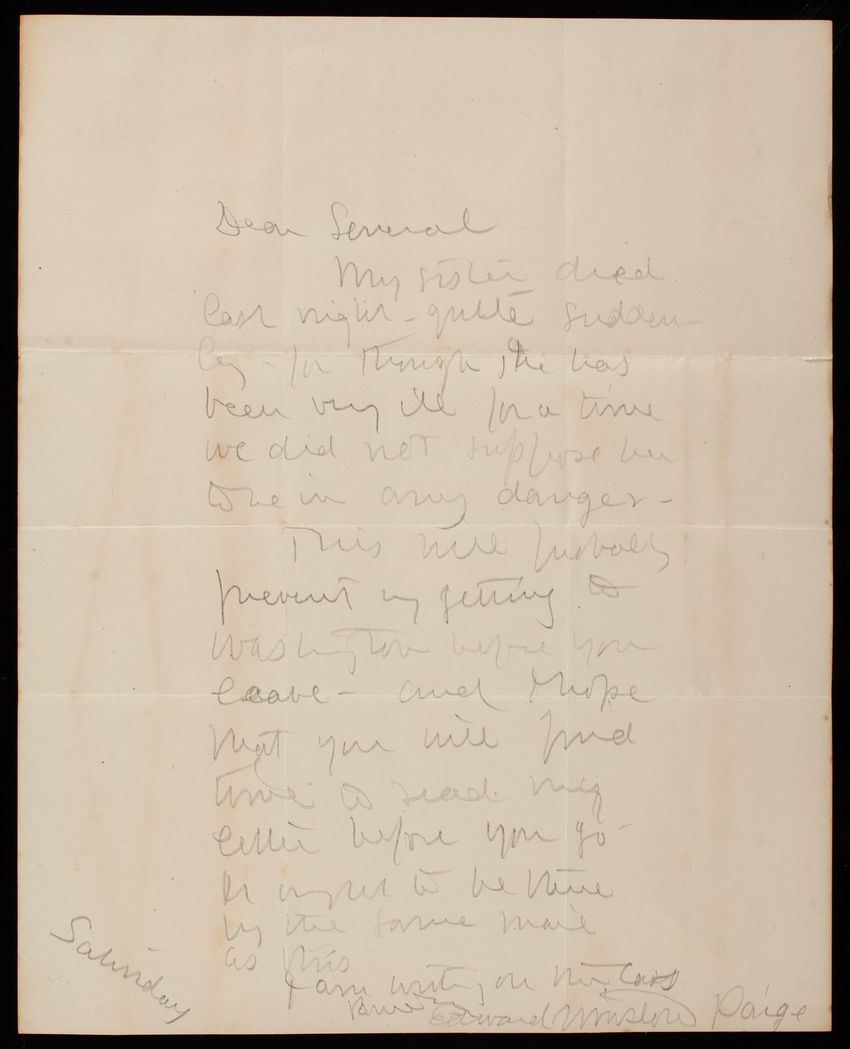 Dear General
My sister died
last night - quite sudden-
ly - for though she has
been very ill for a time
we did not suppose her
to be in any danger -
This will probably
prevent my getting to
Washington before you
leave - and I hope
that you will find
time to read my
letter before you go -
It ought to be there
by the same mail
as this
I am writing on the cars
Edward Winslow Paige
Saturday